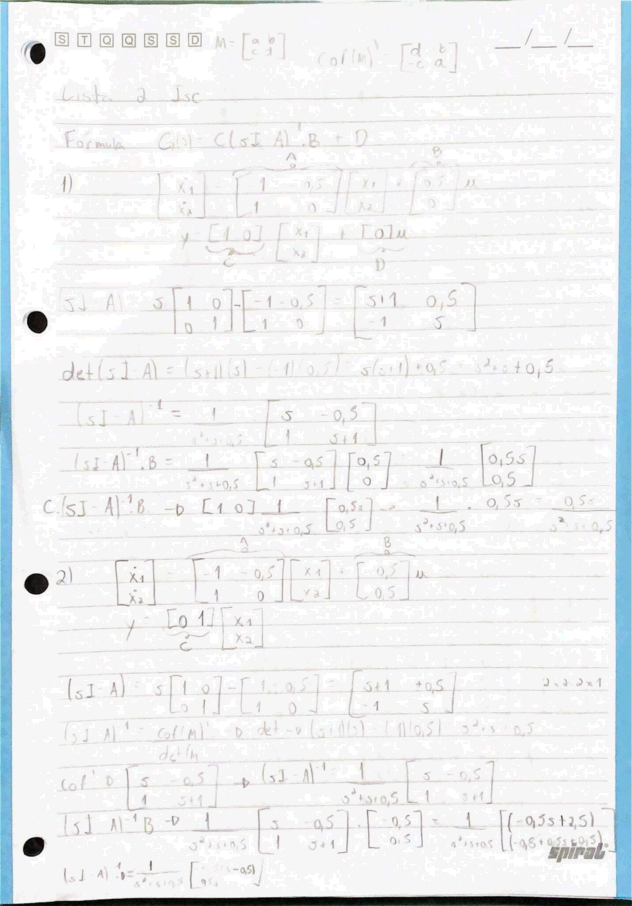 S T Q Q S S D M = [a b; c d] Cof(M)' = [d b; -c a] __/__/__
Lista 2 Isc
Fórmula G(s) = C(sI - A)⁻¹.B + D
1) [ẋ1; ẋ2] = [-1 -0,5; 1 0] [x1; x2] + [0,5; 0] u
A B
y = [1 0] [x1; x2] + [0]u
C D
sI - A) s [1 0; 0 1] - [-1 -0,5; 1 0] = [s+1 0,5; -1 s]
det(sI - A) = (s+1)(s) - (-1)(0,5) = s(s+1) + 0,5 = s² + s + 0,5
(sI - A)⁻¹ = 1/(s²+s+0,5) [s -0,5; 1 s+1]
(sI - A)⁻¹.B = 1/(s²+s+0,5) [s -0,5; 1 s+1] [0,5; 0] = 1/(s²+s+0,5) [0,5s; 0,5]
C.(sI - A)⁻¹.B → [1 0] 1/(s²+s+0,5) [0,5s; 0,5] = 1/(s²+s+0,5) . 0,5s = 0,5s/(s²+s+0,5)
2) [ẋ1; ẋ2] = [-1 -0,5; 1 0] [x1; x2] + [-0,5; 0,5] u
B
y = [0 1] [x1; x2]
C
(sI - A) = s [1 0; 0 1] - [-1 -0,5; 1 0] = [s+1 +0,5; -1 s]
(sI - A)⁻¹ = Cof(M)'/det(M) → det → (s+1)(s) - (-1)(0,5) s²+s+0,5
Cof' → [s -0,5; 1 s+1] → (sI - A)⁻¹ = 1/(s²+s+0,5) [s -0,5; 1 s+1]
(sI - A)⁻¹B → 1/(s²+s+0,5) [s -0,5; 1 s+1] . [-0,5; 0,5] = 1/(s²+s+0,5) [(-0,5s+2,5); (-0,5+0,5s+0,5)]
spiral
(sI - A)⁻¹.B = 1/(s²+s+0,5)